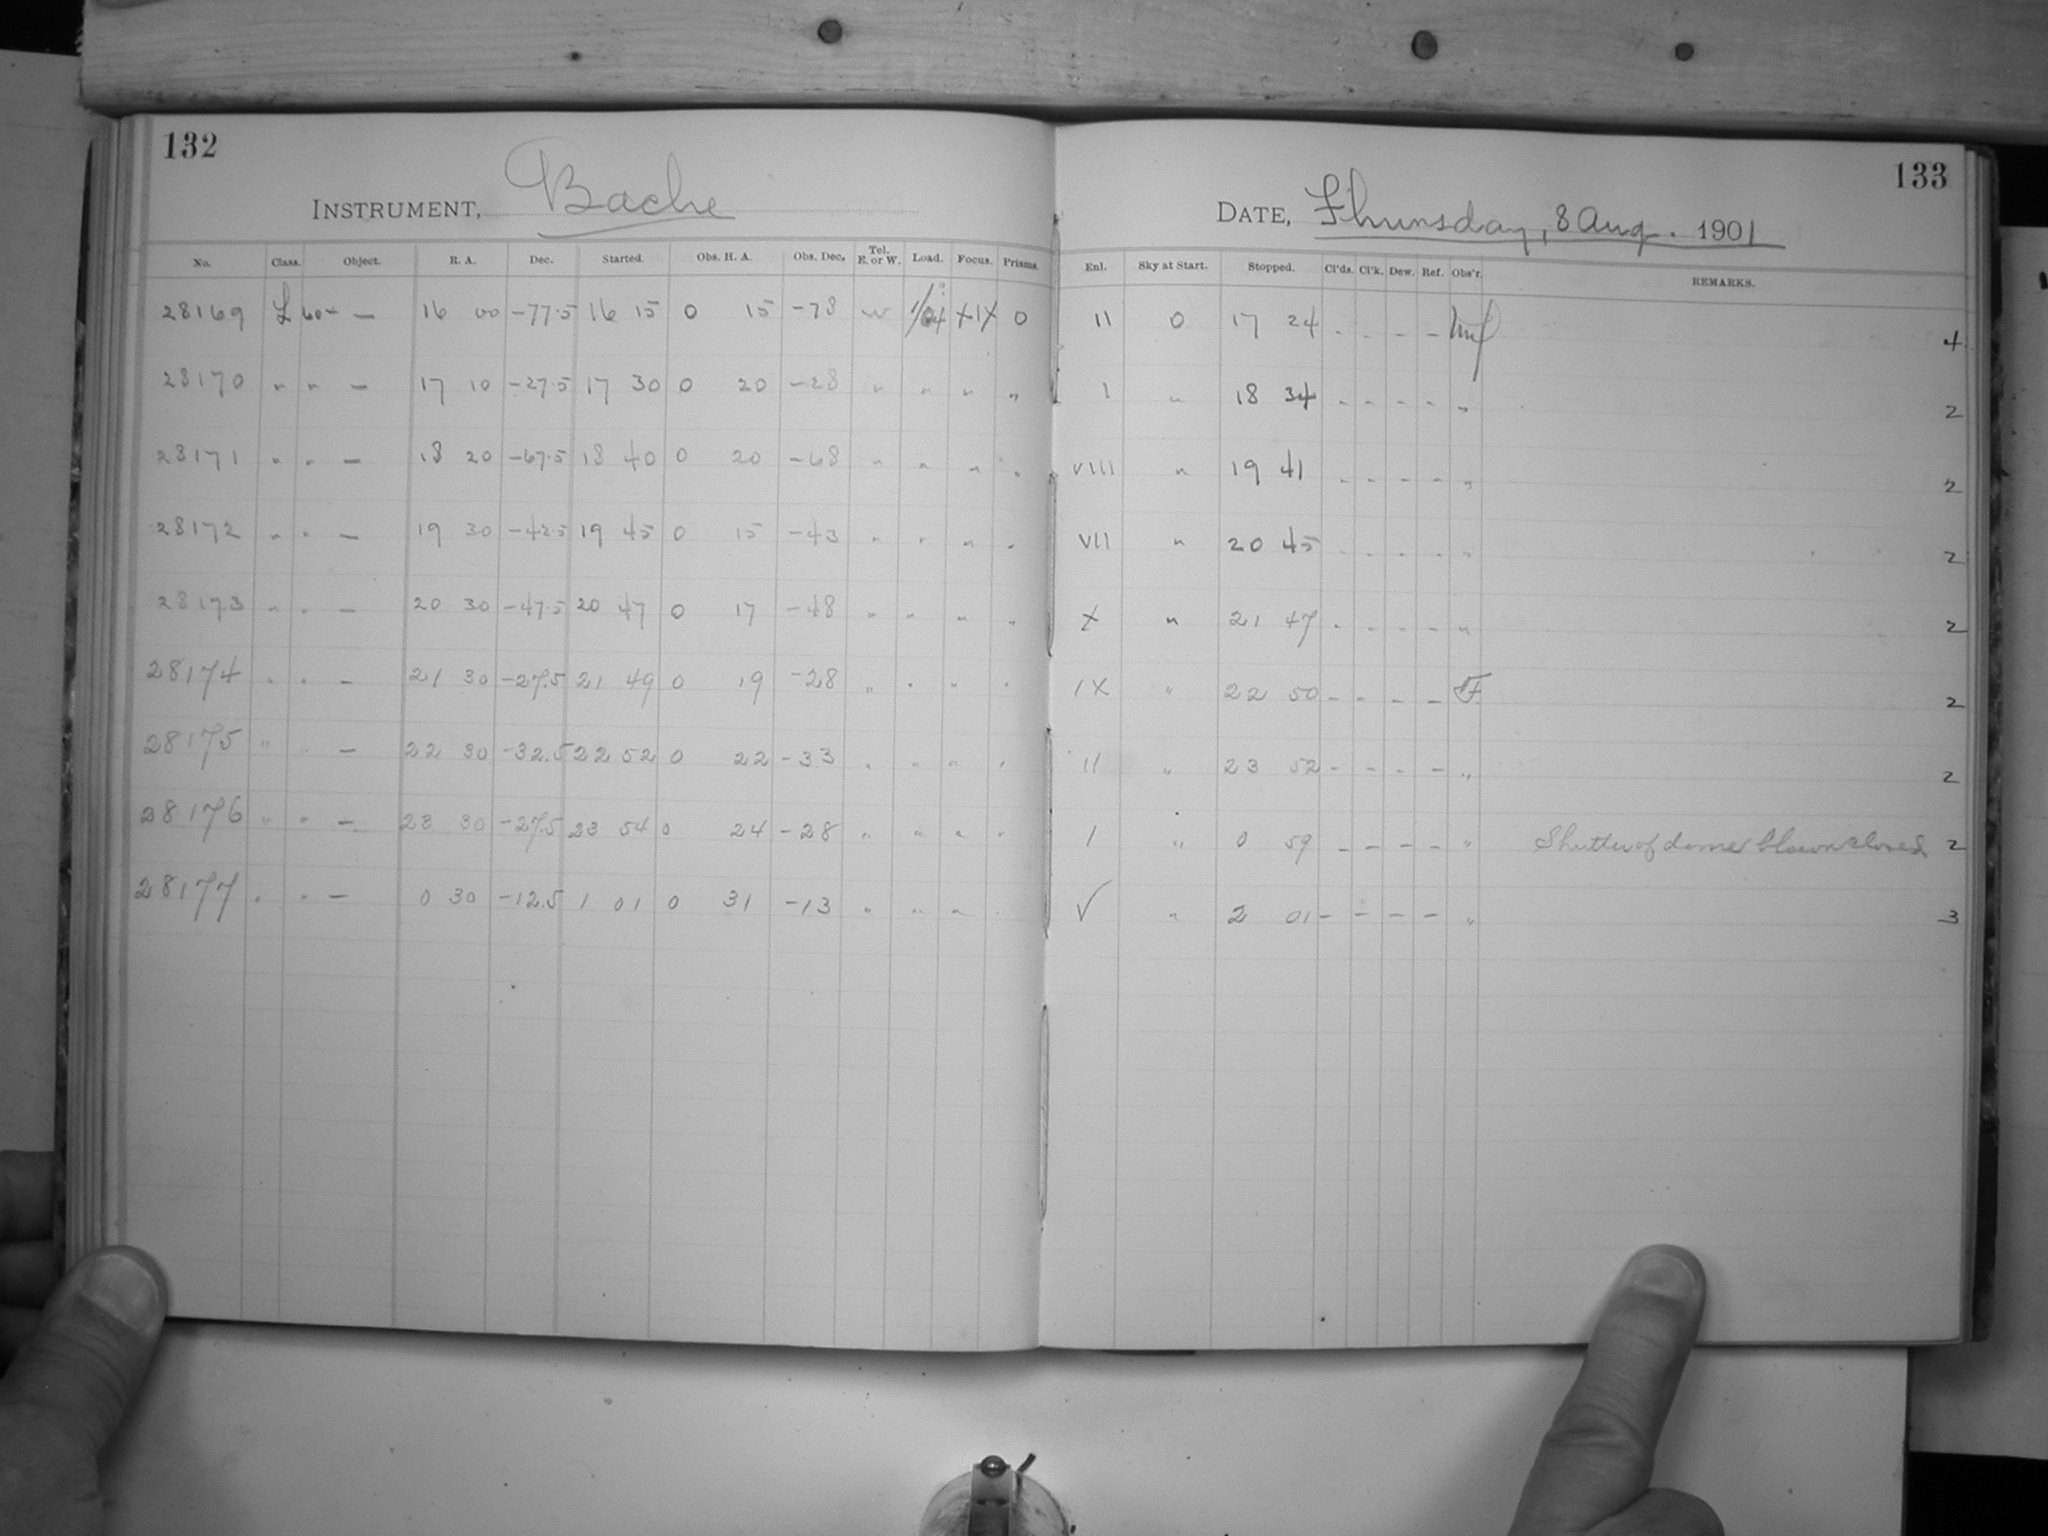 132
INSTRUMENT, Bache
No. Class. Object. R. A. Dec. Started. Obs. H. A. Obs. Dec. Tel. E. or W. Load. Focus. Prisms.
28169 L 60- — 16 00 -77.5 16 15 0 15 -78 W XIX 0
28170 " " — 17 10 -27.5 17 30 0 20 -28 " " " "
28171 " " — 18 20 -67.5 18 40 0 20 -68 " " " "
28172 " " — 19 30 -42.5 19 45 0 15 -43 " " " "
28173 " " — 20 30 -47.5 20 47 0 17 -48 " " " "
28174 " " — 21 30 -27.5 21 49 0 19 -28 " " " "
28175 " " — 22 30 -32.5 22 52 0 22 -33 " " " "
28176 " " — 23 30 -27.5 23 54 0 24 -28 " " " "
28177 " " — 0 30 -12.5 1 01 0 31 -13 " " " "
133
DATE, Thursday, 8 Aug. 1901
Enl. Sky at Start. Stopped. Cl'ds. Cl'k. Dew. Ref. Obs'r. REMARKS.
II 0 17 24 - - - - 4
I " 18 34 - - - - " 2
VIII " 19 41 - - - - " 2
VII " 20 45 - - - - " 2
X " 21 47 - - - - " 2
IX " 22 50 - - - - 2
II " 23 52 - - - - " 2
I " 0 59 - - - - " Shutter of dome blown closed 2
V " 2 01 - - - - " 3